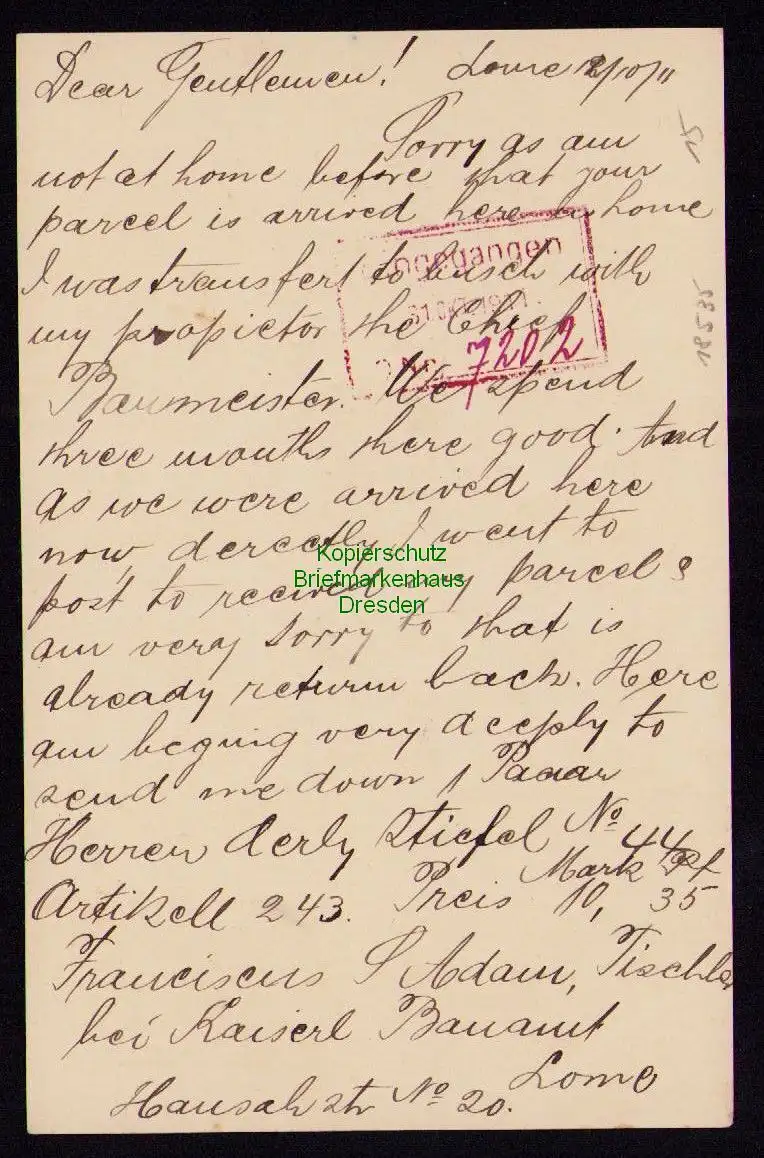 Dear Gentlemen! Lome 2/10/11
Sorry as am
not at home before that your
parcel is arrived here home
I was transfert to busch with
my propictor the Chief
Baumeister. We spend
three mouths there good. And
as we were arrived here
now, derectly I went to
post to recived my parcel &
am very sorry to that is
already return back. Here
am beging very deeply to
send me down 1 Paaar
Herren Derby Stiefel No 44
Mark Pf
Artikell 243. Preis 10, 35
Franciscus S Adam, Tischler
bei Kaiserl Bauamt
Lome
Hausah str No 20.
Eingegangen
31 OKT. 1911
7202
18583
Kopierschutz
Briefmarkenhaus
Dresden